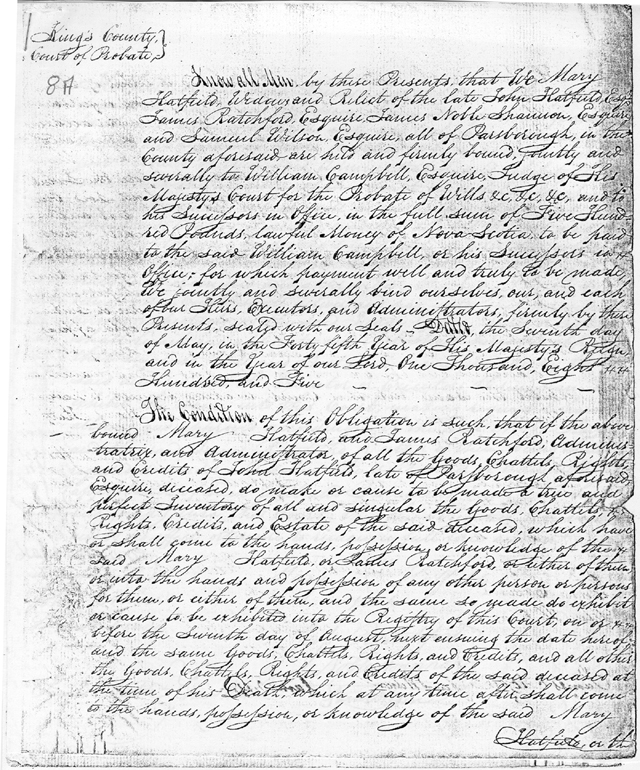 Kings County,
Court of Probate,
8 A
Know all Men by these Presents, that We Mary
Hatfield, Widow, and Relict of the late John Hatfield, Esqr
James Ratchford, Esquire, James Noble Shannon, Esquire
and Samuel Wilson, Esquire, all of Parsborough, in the
County aforesaid, are held and firmly bound, jointly and
severally to William Campbell, Esquire, Judge of His
Majesty's Court for the Probate of Wills &c, &c, &c, and to
his Successors in Office, in the full sum of Five Hund
red Pounds, lawful Money of Nova Scotia, to be paid
to the said William Campbell, or his Successors in
Office; for which payment well and truly to be made,
We jointly and severally bind ourselves, our, and each
of our Heirs, Executors, and Administrators, firmly by these
Presents, sealed with our Seals. Dated the Seventh day
of May, in the Forty fifth Year of His Majesty's Reign
and in the Year of our Lord, One Thousand, Eight
Hundred, and Five
The Condition of this Obligation is such, that if the above
bound Mary Hatfield, and James Ratchford, Adminis
tratrix, and Administrator, of all the Goods, Chattels, Rights,
and Credits of John Hatfield, late of Parsborough aforesaid
Esquire, deceased, do make or cause to be made a true, and
perfect Inventory of all and singular the Goods, Chattels,
Rights, Credits, and Estate of the said deceased, which have
or shall come to the hands, possession, or knowledge of the
said Mary Hatfield, or James Ratchford, or either of them
or into the hands and possession of any other person or persons
for them, or either of them, and the same so made do exhibit
or cause to be exhibited into the Registry of this Court, on or
before the Seventh day of August, next ensuing the date hereof
and the same Goods, Chattels, Rights, and Credits, and all other
the Goods, Chattels, Rights, and Credits of the said deceased at
the time of his Death, which at any time after shall come
to the hands, possession, or knowledge of the said Mary
Hatfield, or th